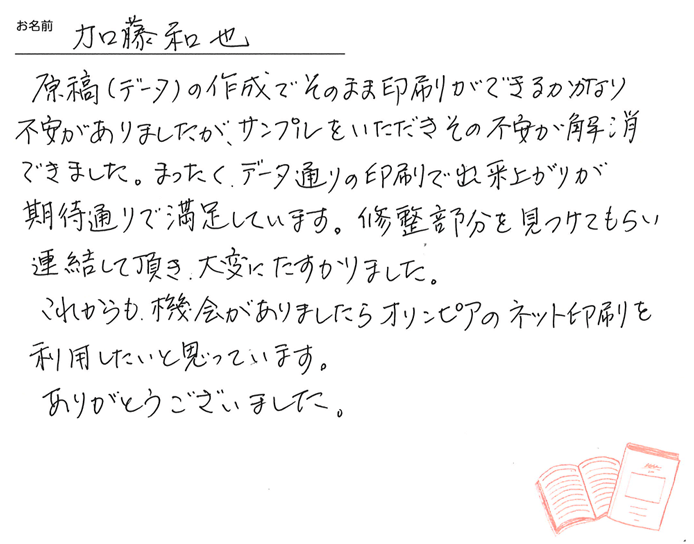 お名前 加藤和也
原稿(データ)の作成でそのまま印刷ができるかかなり
不安がありましたが、サンプルをいただきその不安が解消
できました。まったく、データ通りの印刷で出来上がりが
期待通りで満足しています。修整部分を見つけてもらい
連結して頂き、大変にたすかりました。
これからも、機会がありましたらオリンピアのネット印刷を
利用したいと思っています。
ありがとうございました。